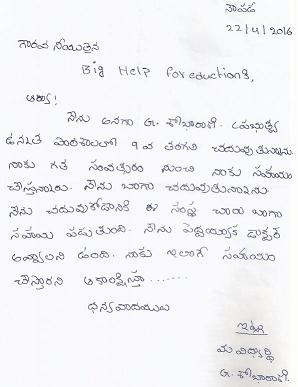 నౌపడ
22/4/2016
గౌరవనీయులైన
Big Help for eductions,
ఆర్యా!
నేను అనగా G. శోభారాణి. ప్రభుత్వ
ఉన్నత పాఠశాలలో 9వ తరగతి చదువుతున్నాను.
నాకు గత సంవత్సరం నుంచి నాకు సహాయం
చేస్తున్నారు. నేను బాగా చదువుతున్నాను.
నేను చదువుకోడానికి ఈ సంస్థ చాలా బాగా
సహాయ పడుతుంది. నేను పెద్దయ్యాక డాక్టర్
అవ్వాలని ఉంది. నాకు ఇలాగే సహాయం
చేస్తారని ఆకాంక్షిస్తూ .......
ధన్యవాదములు
ఇట్లు
మీ విద్యార్థి
G. శోభారాణి.